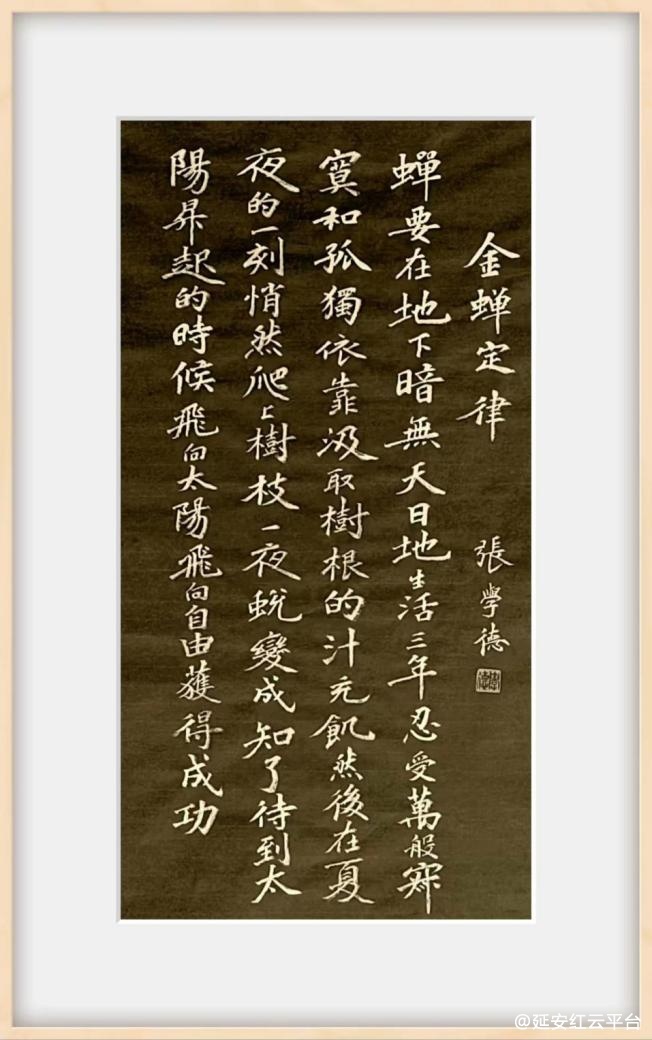 金蝉定律 張學德
蟬要在地下暗無天日地生活三年忍受萬般寂
寞和孤獨依靠汲取樹根的汁充飢然後在夏
夜的一刻悄然爬上樹枝一夜蛻變成知了待到太
陽昇起的時候飛向太陽飛向自由獲得成功
@延安红云平台